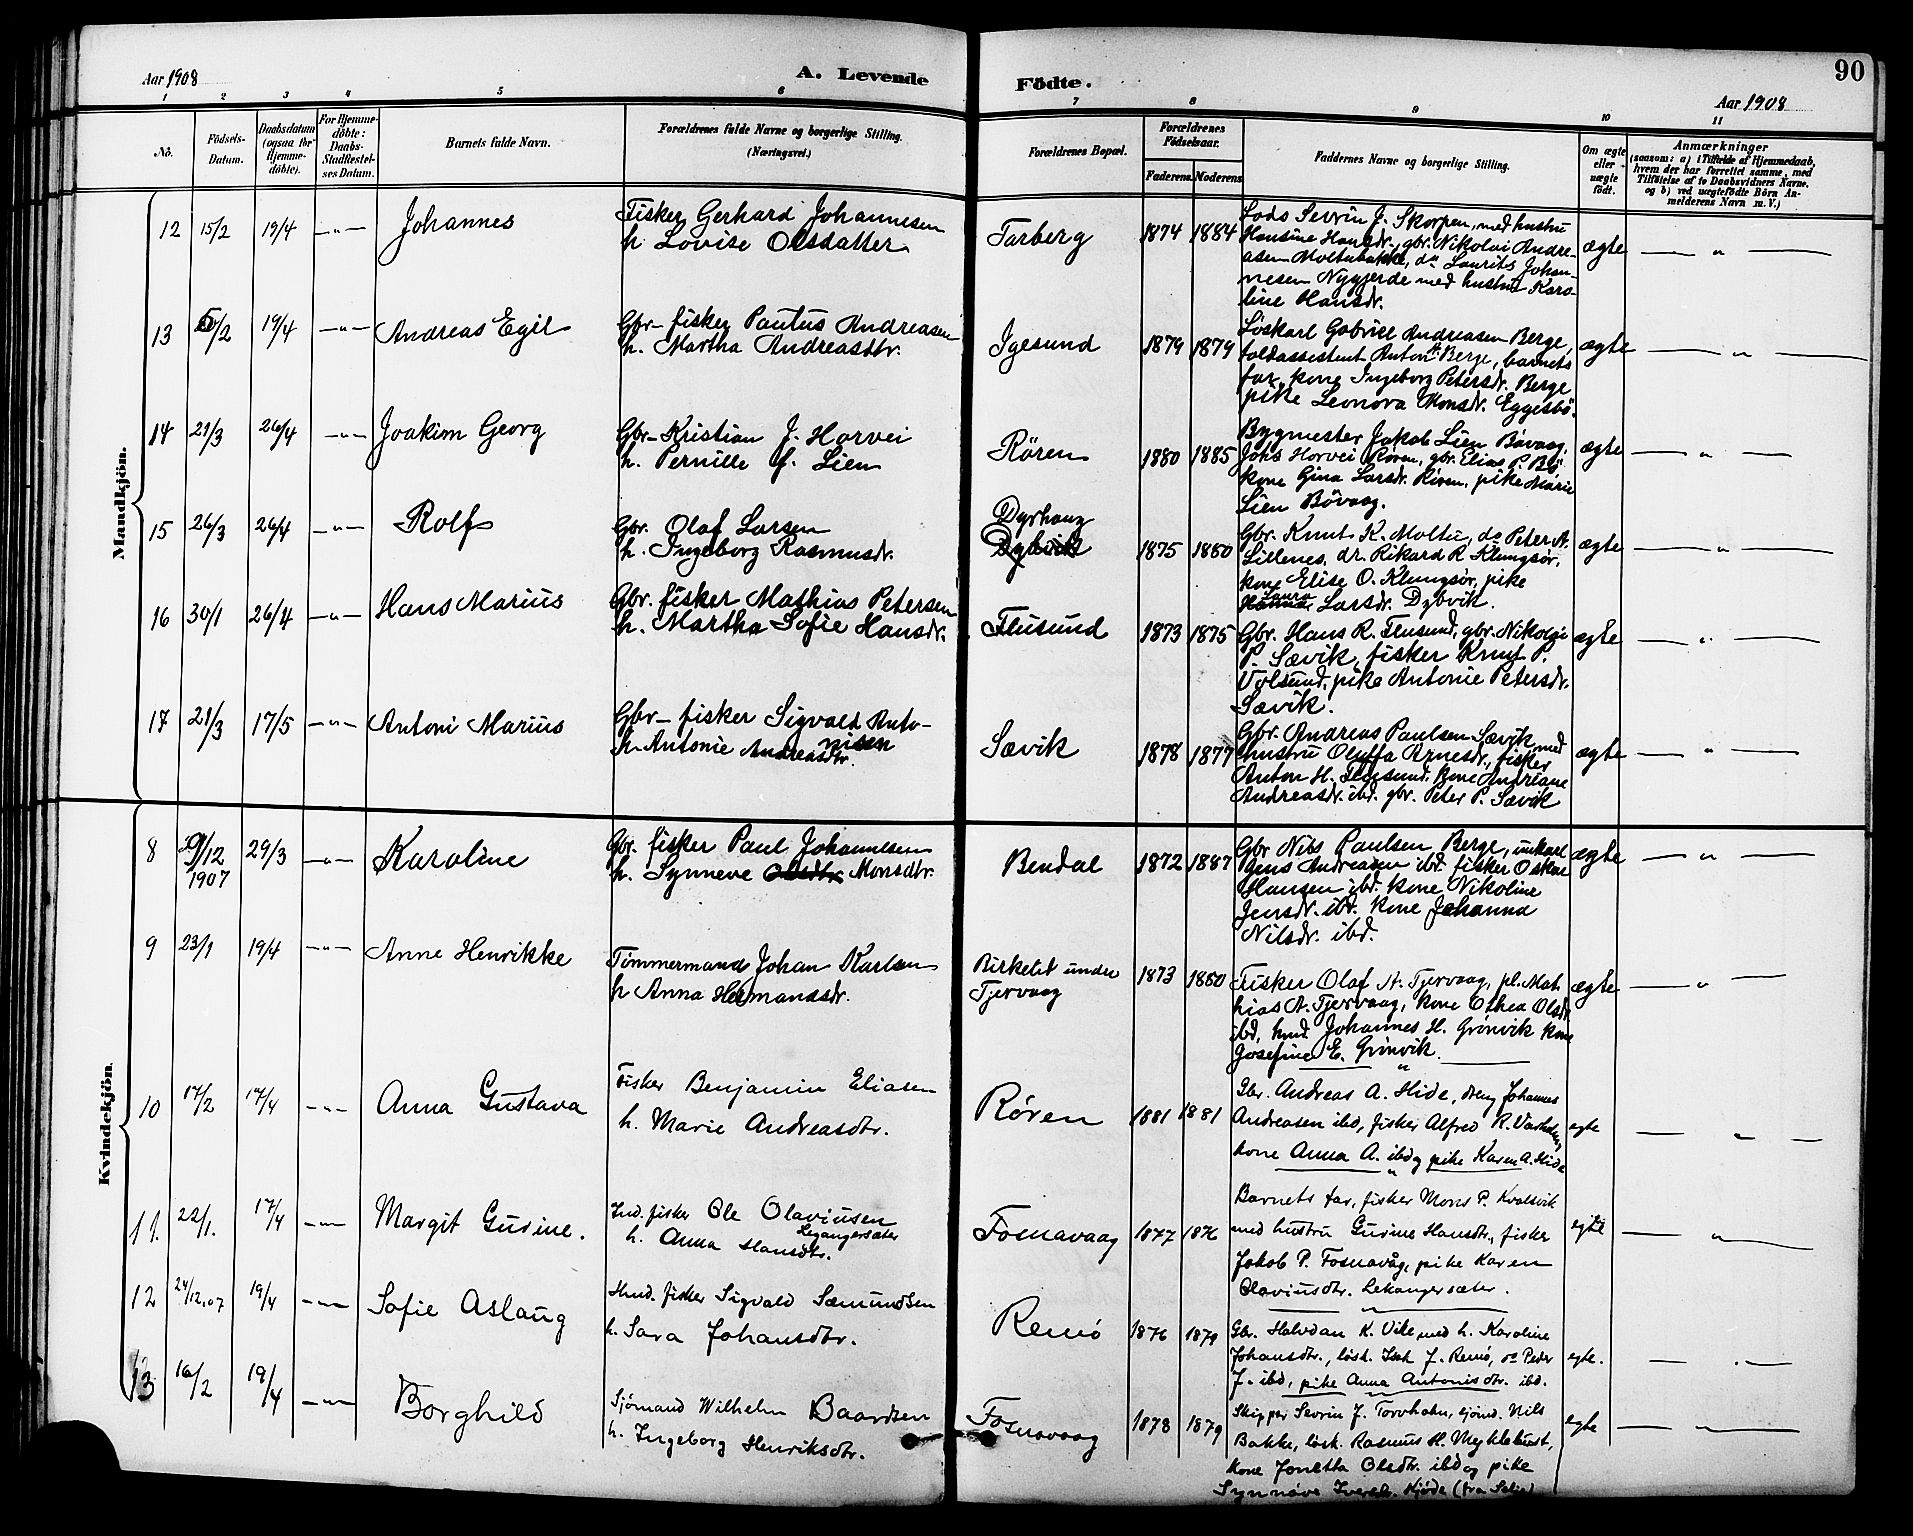 Aar 1908
A. Levende
Födte.
90
Aar 1908
1 2 3 4 5 6 7 8 9 10 11
No.
Födsels-Datum.
Daabsdatum (ogsaa for Hjemme-döbte).
For Hjemme-döbte: Daabs-Stadfestel-ses Datum.
Barnets fulde Navn.
Forældrenes fulde Navne og borgerlige Stilling.
(Næringsvei.)
Forældrenes Bopæl.
Forældrenes Födselsaar.
Faderens Moderens
Faddernes Navne og borgerlige Stilling.
Om ægte eller uægte födt.
Anmærkninger
(saasom: a) i Tilfælde af Hjemmedaab,
hvem der har forrettet samme, med
Tilföielse af to Daabsvidners Navne,
og b) ved uægtefödte Börn An-
melderens Navn m. V.)
Mandkjön.
12 15/2 19/4 —"— Johannes
Fisker Gerhard Johannesen
h. Lovise Olsdatter
Tarberg 1874 1884
Lods Sevrin J. Skorpen, med hustru
Hansine Hansdr., gbr. Nikolai Andre-
asen Moltubakke, do Laurits Johan-
nesen Nygjerde med hustru Karo-
line Hansdr.
ægte — " —
13 5/2 19/4 —"— Andreas Egil
Gbr- fisker Paulus Andreasen
h. Martha Andreasdtr.
Igesund 1879 1879
Løskarl Gabriel Andreasen Berge,
toldassistent Anton Berge, barnets
far, kone Ingeborg Petersdr. Berge
pike Leonora Monsdr. Eggesbö.
ægte — " —
14 21/3 26/4 —"— Joakim Georg
Gbr- Kristian J. Horvei
h. Pernille f. Lien
Røren 1880 1885
Bygmester Jakob Lien Bövaag,
Johs Horvei Røren, gbr. Elias P. Bö
kone Gina Larsdr. Røren, pike Marie
Lien Bövaag.
ægte — " —
15 26/3 26/4 —"— Rolf
Gbr. Olaf Larsen
h. Ingeborg Rasmusdr.
Dyrhaug
Dybvik
1875 1880
Gbr. Knut K. Moltu, do Peter A.
Lillenes, dr. Rikard R. Klungsør,
kone Elise O. Klungsør, pike
Laura
Larsdr. Dybvik.
ægte — " —
16 30/1 26/4 —"— Hans Marius
Gbr. fisker Mathias Petersen
h. Martha Sofie Hansdr.
Flusund 1873 1875
Gbr. Hans R. Flusund, gbr. Nikolai
P. Sævik, fisker Knut P.
Volsund, pike Antonie Petersdr.
Sævik.
ægte — " —
17 21/3 17/5 —"— Antoni Marius
Gbr- fisker Sigvald Anto-
nisen
h. Antonie Andreasdtr.
Sævik 1878 1877
Gbr. Andreas Paulsen Sævik med
hustru Oluffa Arnesdr., fisker
Anton H. Flusund, kone Andreane
Andreasdr. ibd. gbr. Peter P. Sævik
ægte — " —
Kvindekjön.
8 29/12 1907 29/3 —"— Karoline
Gbr. fisker Paul Johannesen
h. Synneve Olsdtr Monsdtr.
Bendal 1872 1887
Gbr Nils Paulsen Berge, unkarl
Jens Andreasen ibd. fisker Oskar
Hansen ibd. kone Nikoline
Jensdr. ibd. kone Johanna
Nilsdr. ibd.
ægte — " —
9 23/1 19/4 —"— Anne Henrikke
Tömmermand Johan Karlsen
h Anna Hermansdr.
Birkelet under
Tjervaag
1873 1880
Fisker Olaf A. Tjervaag, pl. Mat
hias A. Tjervaag, kone Othea Olsdr
ibd, hmd Johannes H. Grönvik kone
Josefine E. Grönvik.
ægte — " —
10 17/2 17/4 —"— Anna Gustava
Fisker Benjamin Eliasen
h. Marie Andreasdtr.
Røren 1881 1881
Gbr. Andreas A. Hide, dreng Johannes
Andreasen ibd, fisker Alfred R. Varholm,
kone Anna A. ibd og pike Karen A. Hide
egte — " —
11. 22/1. 17/4 —"— Margit Gurine.
Ind. fisker Ole Olaviusen
Legangersæter
h. Anna Hansdtr.
Fosnavaag 1877 1876
Barnets far, fisker Mons P. Kvalsvik
med hustru Gurine Hansdtr., fisker
Jakob P. Fosnavåg, pike Karen
Olaviusdtr. Lekangersæter.
egte — " —
12 24/12.07 19/4 —"— Sofie Aslaug
Hmd. fisker Sigvald Sæmundsen
h. Sara Johansdtr.
Remö 1876 1879
Gbr. Halvdan K. Vike med h. Karoline
Johansdtr., løsk. Isak J. Remö, do Peder
J. ibd, pike Anna Antonisdtr. ibd.
egte. — " —
13 16/2 19/4 —"— Borghild
Sjömand Wilhelm Baardsen
h. Ingeborg Henriksdtr.
Fosnavaag 1878 1879
Skipper Sevrin J. Torvholm, sjömd. Nils
Bakke, løsk. Rasmus H. Myklebust,
kone Jonetta Olsdtr. ibd og pike
Synnöve Iversdtr. Hjöde (fra Selje)
egte — " —